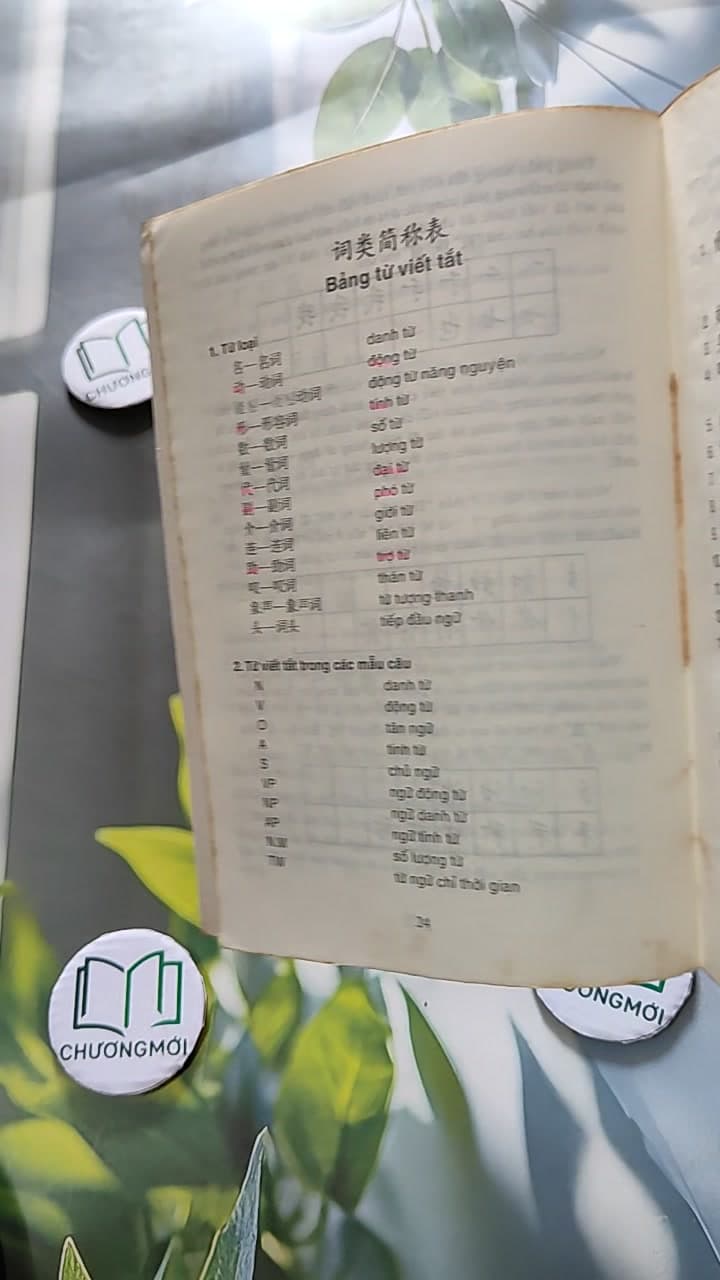 词类简称表
Bảng từ viết tắt
1. Từ loại
名—名词 danh từ
动—动词 động từ
动词 động từ năng nguyện
形—形容词 tính từ
数—数词 số từ
lượng từ
代—代词 đại từ
副—副词 phó từ
介—介词 giới từ
连—连词 liên từ
助—助词 trợ từ
叹—叹词 thán từ
象声—象声词 từ tượng thanh
头—词头 tiếp đầu ngữ
2. Từ viết tắt trong các mẫu câu
N danh từ
V động từ
O tân ngữ
A tính từ
S chủ ngữ
VP ngữ động từ
NP ngữ danh từ
AP ngữ tính từ
NW số lượng từ
TW từ ngữ chỉ thời gian
24
CHƯƠNG
CHƯƠNGMỚI
ƯƠNGMỚI